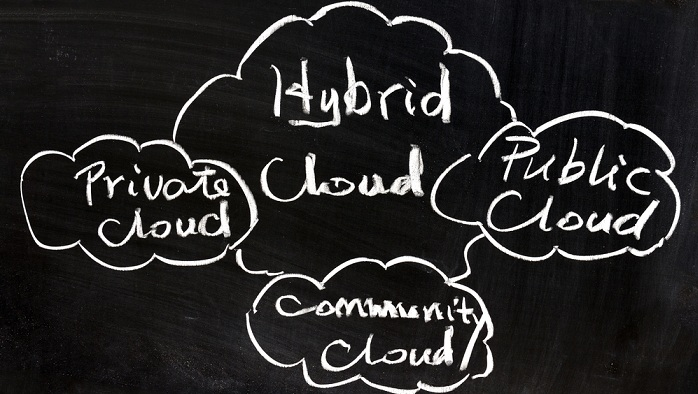 Hybrid
Cloud
Private
Cloud
Public
Cloud
Community
Cloud